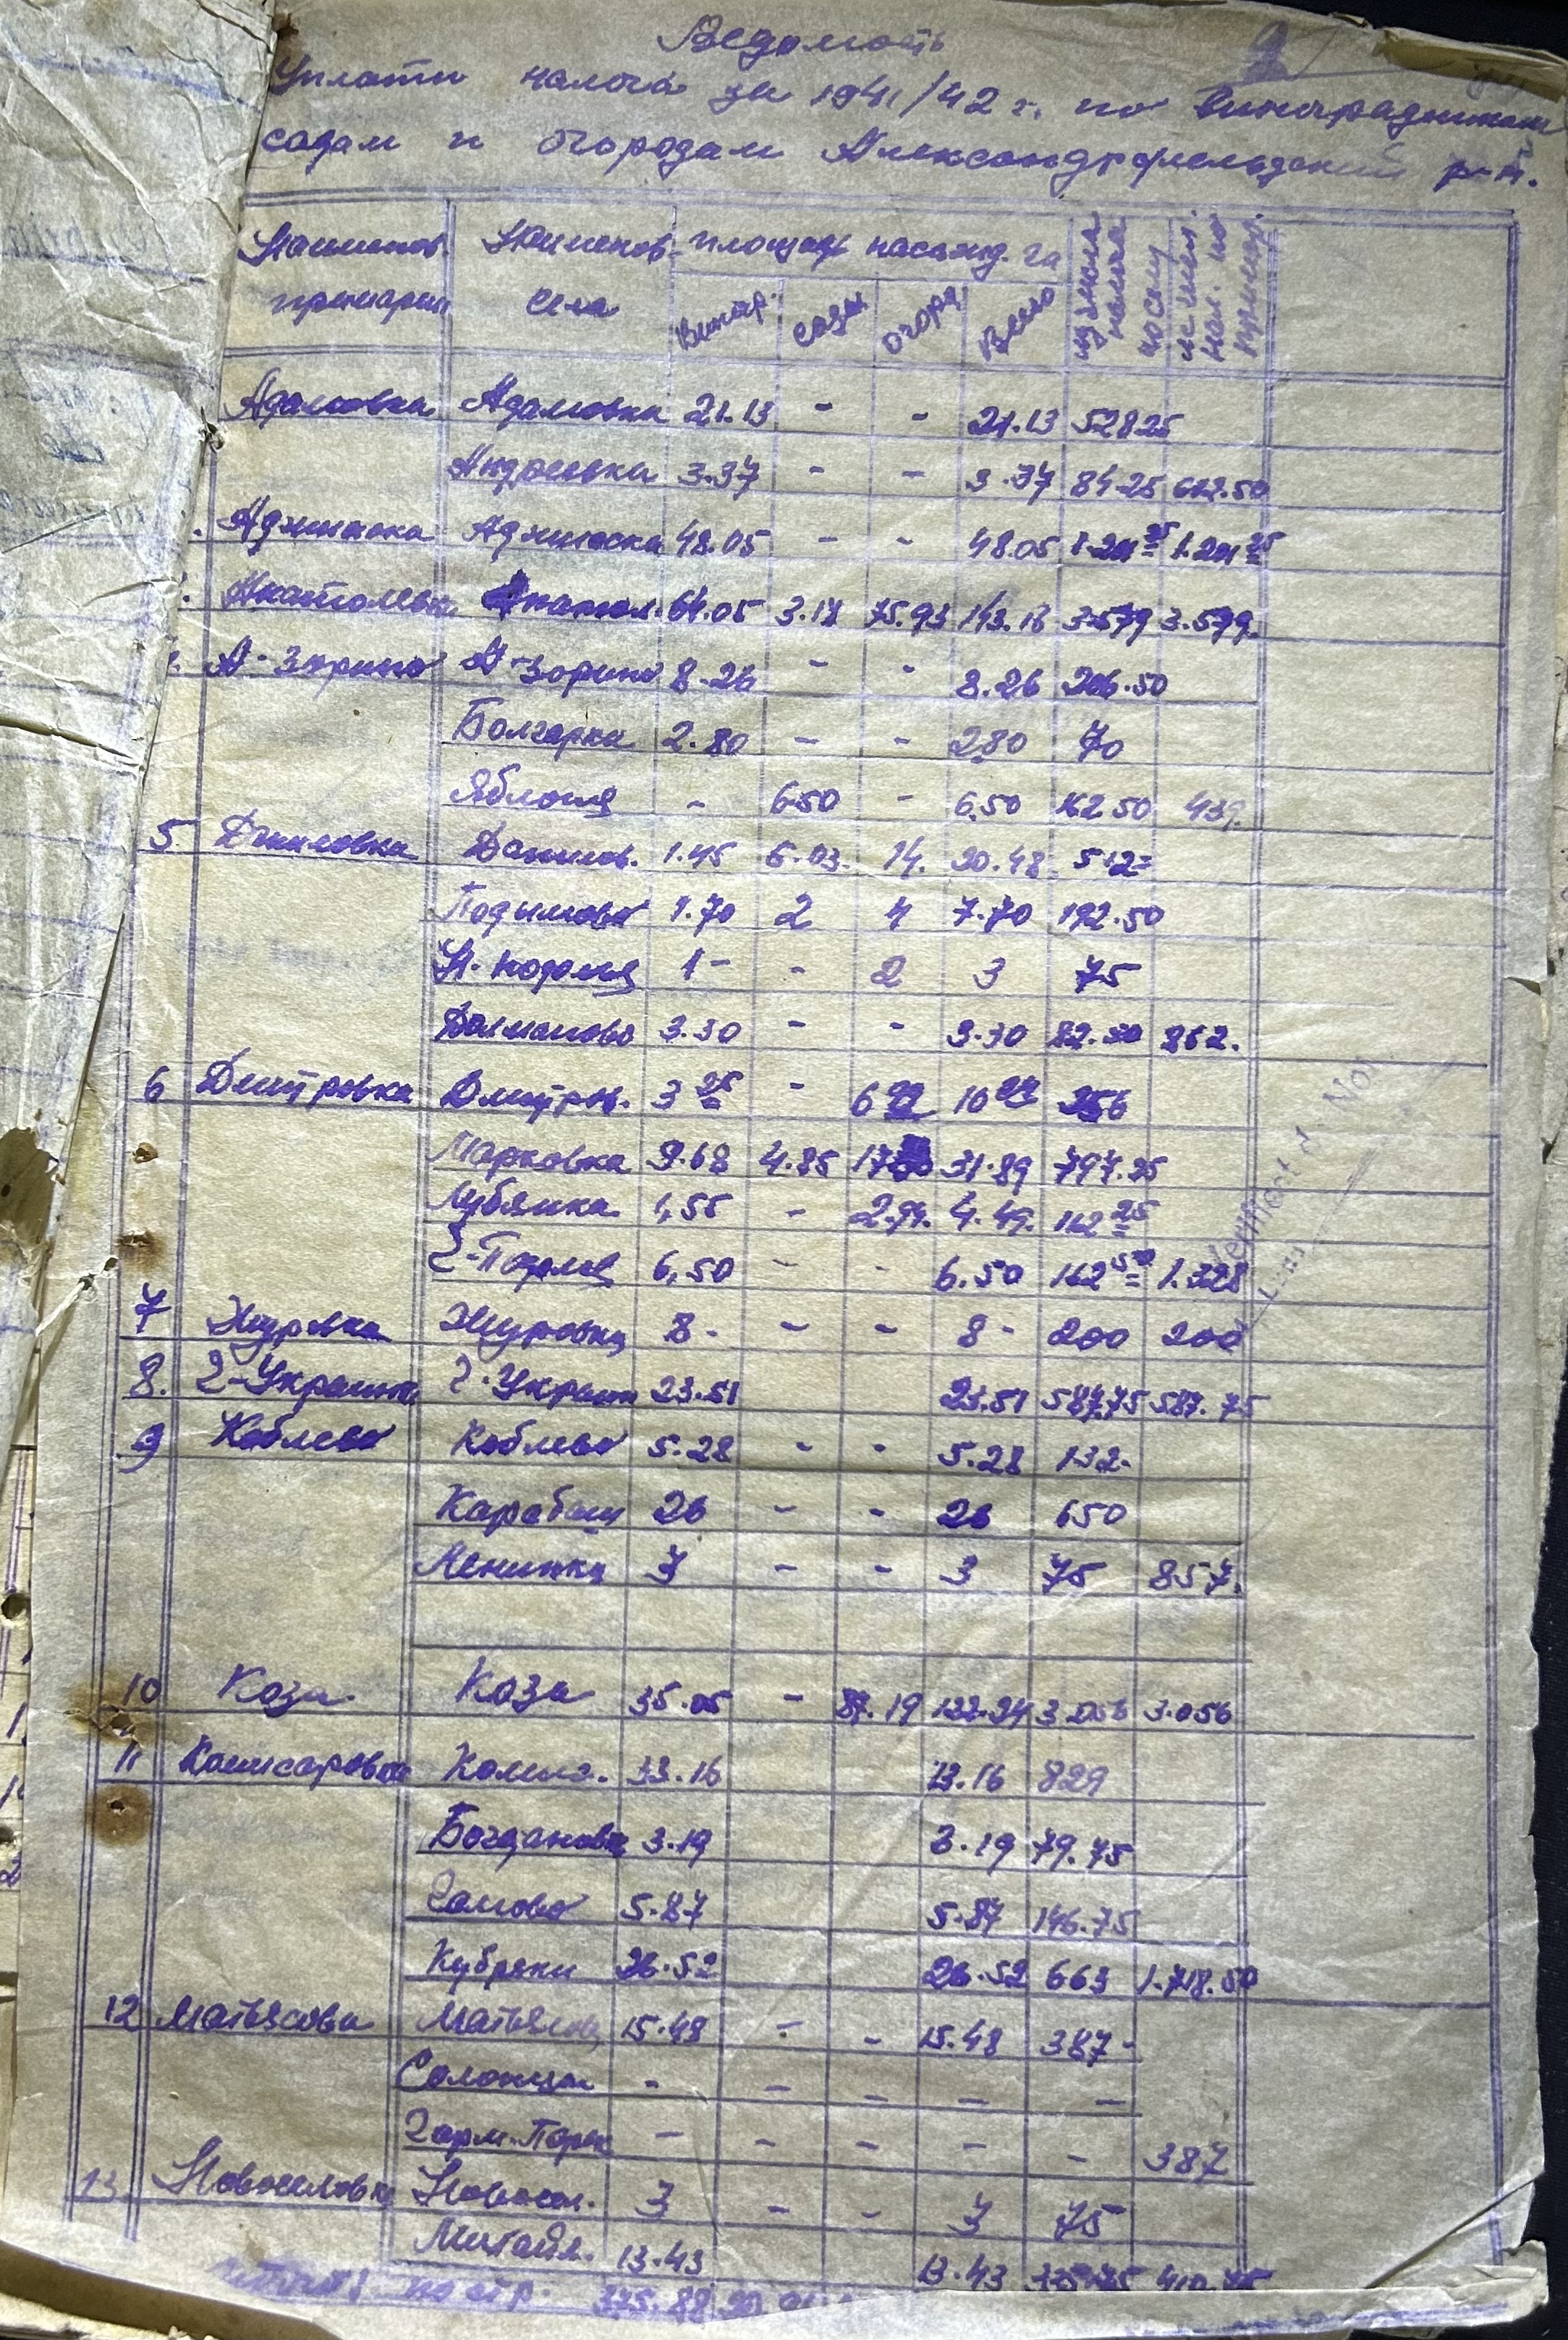 Ведомость
Уплати налога за 1941/42 г. по виноградникам
садам и огородам Александрфельдский р-н.
Наименов. Наименов. площадь насажд. га
примарии села Виногр. сады огород. Всего
Адамовка Адамовка 21.13 - - 21.13 528 25
Андреевка 3.37 - - 3.37 84 25 612.50
Аджиаска Аджиаска 48.05 - - 48.05 1.201 25 1.201 25
Анатольевка Анатол. 64.05 3.18 75.93 143.16 3579 3.579
А-Зорино А-Зорино 8.26 - - 8.26 206.50
Болгарка 2.80 - - 2.80 70
Яблоня - 6 50 - 6.50 162 50 439
5 Даниловка Данилов. 1.45 5.03 14. 20.48 512=
Подымово 1.70 2 4 7.70 192.50
1- - 2 3 75
3.30 - - 3.30 82.50 862.
6 Дмитровка Дмитров. 3 25 - 6 99 10 24 256
Марковка 9.68 4.85 31.89 797.25
Лубянка 1,55 - 2.94. 4.49. 112 25
6,50 - - 6.50 162 50 1.328
7 Журовка Журовка 8- - - 8- 200 200
8. 2-Украинка 2-Украин 23.51 23.51 587.75 587.75
9 Коблево Коблево 5.28 - - 5.28 132-
Карабаш 26 - - 26 650
Ленинка 3 - - 3 75 857.
10 Коза Коза 35.05 - 87.19 122.24 3.056 3.056
11 Комисаровка Комис. 33.16 33.16 829
Богдановка 3.19 3.19 79.75
5.87 5.87 146.75
Кубряки 26.52 26.52 663 1.718.50
12 Матьясова Матьясов 15.48 - - 15.48 387-
Солонцы - - - - -
Гарм.-Парк - - - - - 387
13. Новоселовка Новосел. 3 - - 3 75
Михайл. 13.43 13.43 335.75 410.75
по стр. 375.88